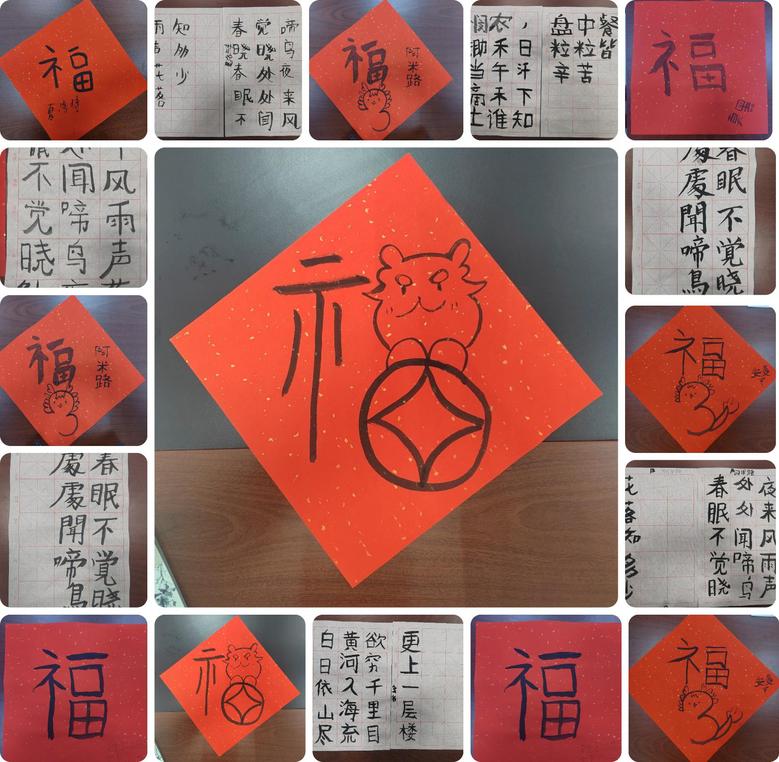 福
啼鸟夜来风
觉晓处处闻
春晓春眠不
知多少
雨声花落
福
阿米路
餐皆
中粒苦
盘粒辛
，日汗下知
农禾午禾谁
悯锄当滴土
福
风雨声
闻啼鸟
眠不觉晓
礻
春眠不覺晓
處聞啼鳥
福
阿米路
福
春眠不覺晓
處處聞啼鳥
阿米路
夜来风雨声
处处闻啼鸟
春眠不觉晓
花落知多少
福
礻
更上一层楼
欲穷千里目
黄河入海流
白日依山尽
福
福